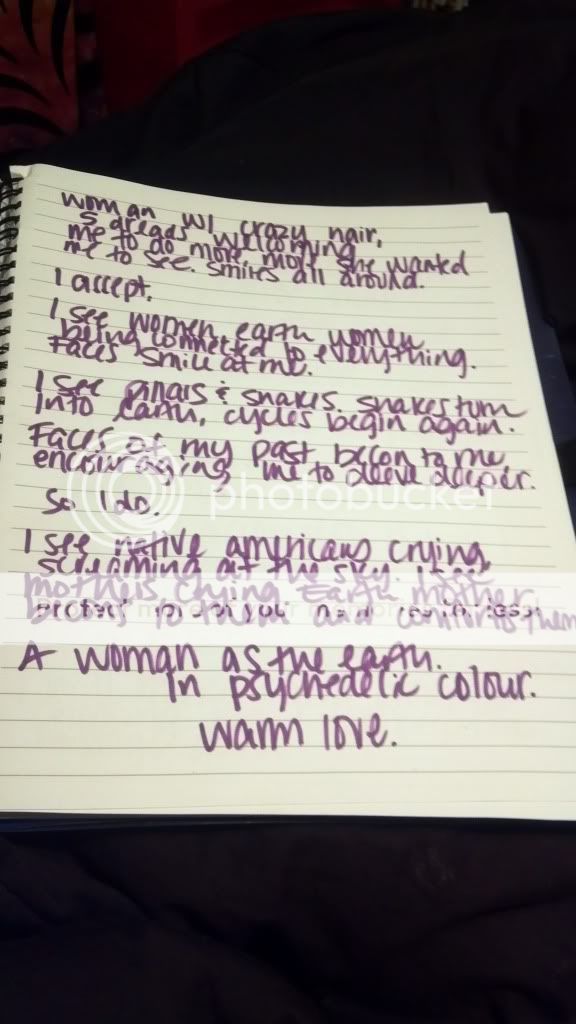 woman w/ crazy hair,
& dreads welcoming
me to do more, more she wanted
me to see. smiles all around.
I accept.
I see women, earth women
being connected to everything.
Faces smile at me.
I see & snakes. snakes turn
into earth, cycles begin again.
Faces of my past becon to me
encouraging me to deeper.
So I do.
I see native americans crying,
screaming at the sky. I see
mothers crying Earth mother
to them and comforts them
A woman as the earth.
In psychedelic colour.
warm love.
photobucket
Protect more of your memories for less!